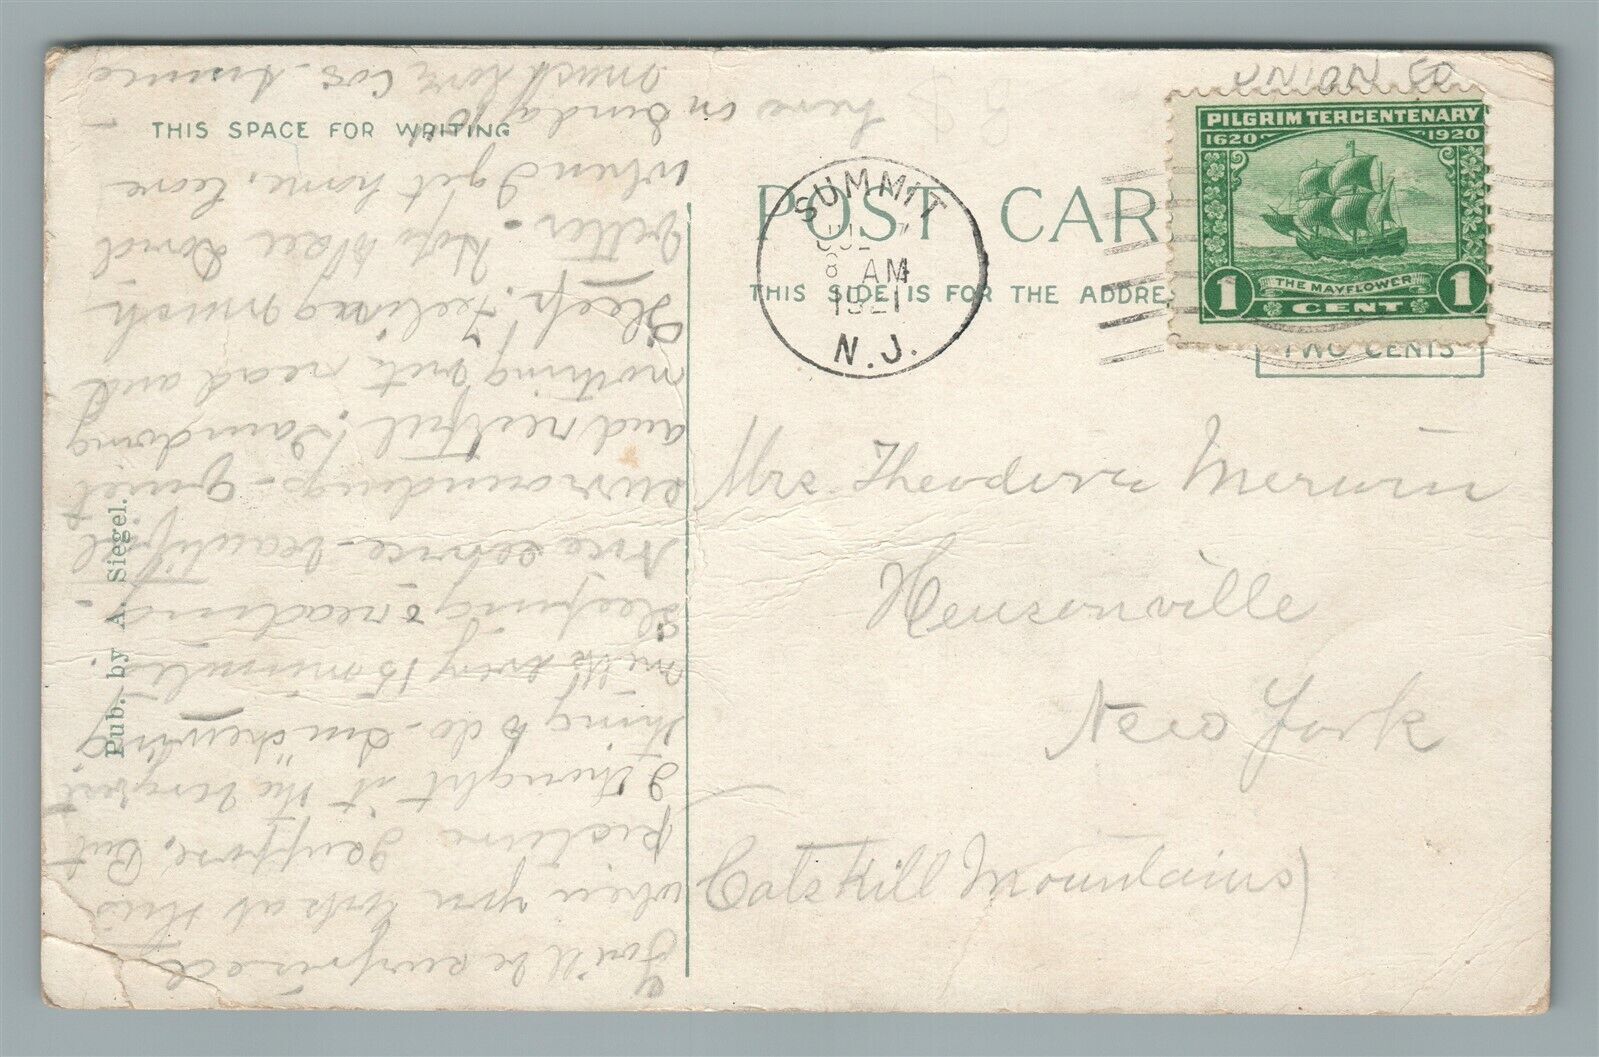 UNION CO
PILGRIM TERCENTENARY
1620 1920
THE MAYFLOWER
1 CENT 1
TWO CENTS
SUMMIT
JUL 7
8 AM
1921
N.J.
POST CAR
THIS SIDE IS FOR THE ADDRE
THIS SPACE FOR WRITING
Pub. by A. Siegel.
Mrs Theodore Merwin
Hensonville
New York
Catskill Mountains)
You'll be surprised
when you look at this
picture I suppose, but
I thought it the largest
thing to do - Am drinking
milk every 15 minutes.
Sleeping & reading -
Nice service - beautiful
surroundings - quiet
and restful! I am doing
nothing but read and
sleep! Feeling much
better - Hope to see
when I get home, leave
here on Sunday 10
much love, Cos.